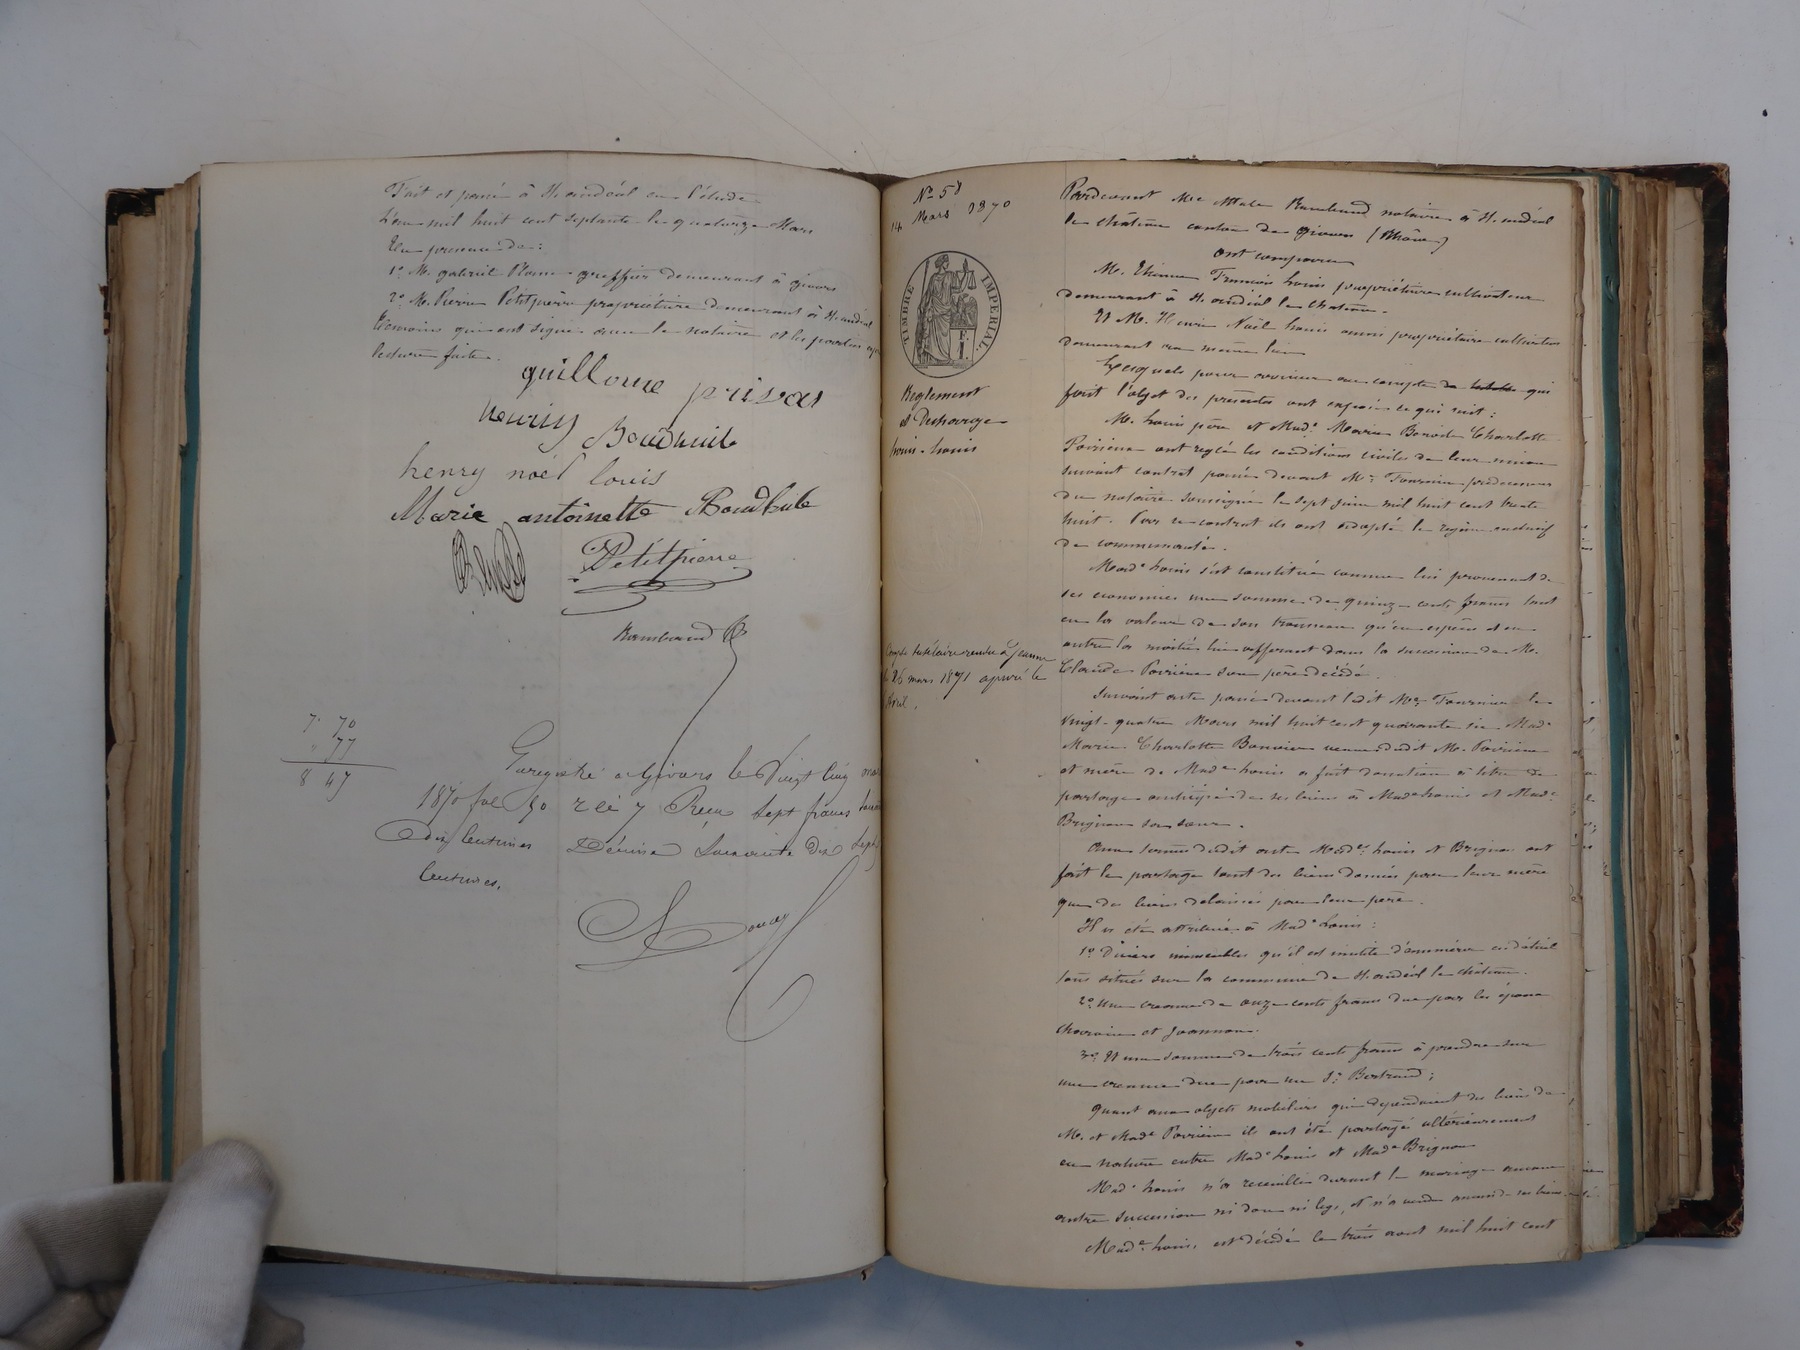 Fait et passé à St andéol en l'étude
L'an mil huit cent septante le quatorze Mars
En présence de :
1º M. gabriel Plane greffier demeurant à givors
2º M. Pierre Petitpierre propriétaire demeurant à St andéol
témoins qui ont signé avec le notaire et les parties
lecture faite.
guillome privas
henry
Boudhuile
henry noël louis
Marie antoinette Boudhuile
Petitpierre
Rambaud
7. 70
" 77
8 47
Enregistré a Givors le Vingt Cinq
1870 fol 50 Reçu sept francs
dix Centimes Décime Soixante dix Sept
Centimes.
Nº 58
14 Mars 1870
TIMBRE IMPERIAL.
Reglement
et Decharge
Louis - Louis
Compte tutélaire rendu à Jeanne
le 26 mars 1871 apuré le
Avril.
Pardevant Me Rambaud notaire à St. andéol
le château canton de givors (Rhône)
ont comparu
M. Etienne François Louis propriétaire cultivateur
demeurant à St. andéol le château.
Et M. Henri Noël Louis aussi propriétaire cultivateur
demeurant au même lieu
Lesquels pour arriver au compte qui
fait l'objet des présentes ont exposé ce qui suit :
M. Louis père et Made Marie Benoite Charlotte
Poirieux ont reglé les conditions civiles de leur union
suivant contrat passé devant Me Fournier prédecesseur
du notaire soussigné le sept juin mil huit cent trente
huit. Par ce contrat ils ont adopté le régime exclusif
de communauté.
Made Louis s'est constituée comme lui provenant de
ses économies une somme de quinze cents francs tant
en la valeur de son trousseau qu'en espèces et en
outre la moitié lui afférant dans la succession de M.
Claude Poirieux son père décédé.
Suivant acte passé devant ledit Me Fournier le
vingt-quatre Mars mil huit cent quarante six Made
Marie Charlotte veuve dudit M. Poirieux
et mère de Made Louis a fait donation à titre de
partage anticipé de ses biens à Made Louis et Made
Brignon sa sœur.
Aux termes dudit acte Mesdes Louis et Brignon ont
fait le partage tant des biens donnés par leur mère
que des biens délaissés par leur père.
Il a été attribué à Made Louis :
1º Divers immeubles qu'il est inutile d'énumérer en détail
tous situés sur la commune de St. andéol le château.
2º Une créance de onze cents francs due par les époux
et Joannon.
3º Et une somme de trois cents francs à prendre sur
une creance due par un Sr Bertrand ;
Quant aux objets mobiliers qui dépendaient des biens de
M. et Made Poirieux ils ont été partagés ultérieurement
en nature entre Made Louis et Made Brignon
Made Louis n'a recueilli durant le mariage aucune
autre succession ni don ni legs, et n'a vendu aucun de ses biens.
Made Louis, est décédée le trois août mil huit cent